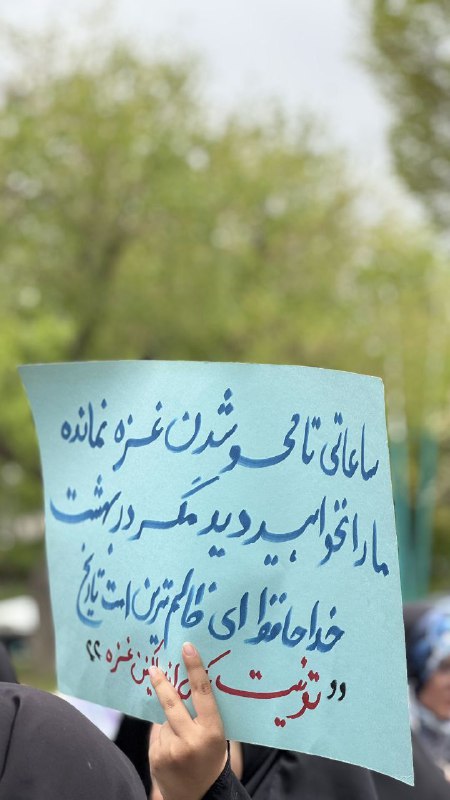 ساعاتی تا محو شدن غزه نمانده
ما را نخواهید دید مگر در بهشت
خداحافظ ای ظالم ترین امت تاریخ
«توئیت یکی از ساکنین غزه»